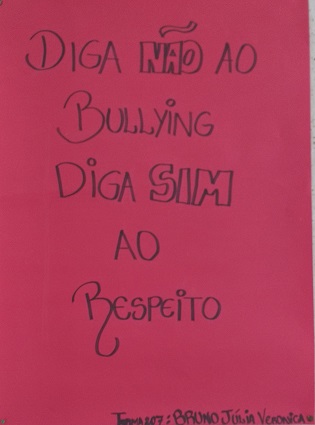 DIGA NÃO AO
BULLYING
DIGA SIM
AO
RESPEITO
TURMA 207: BRUNO JÚLIA VERONICA